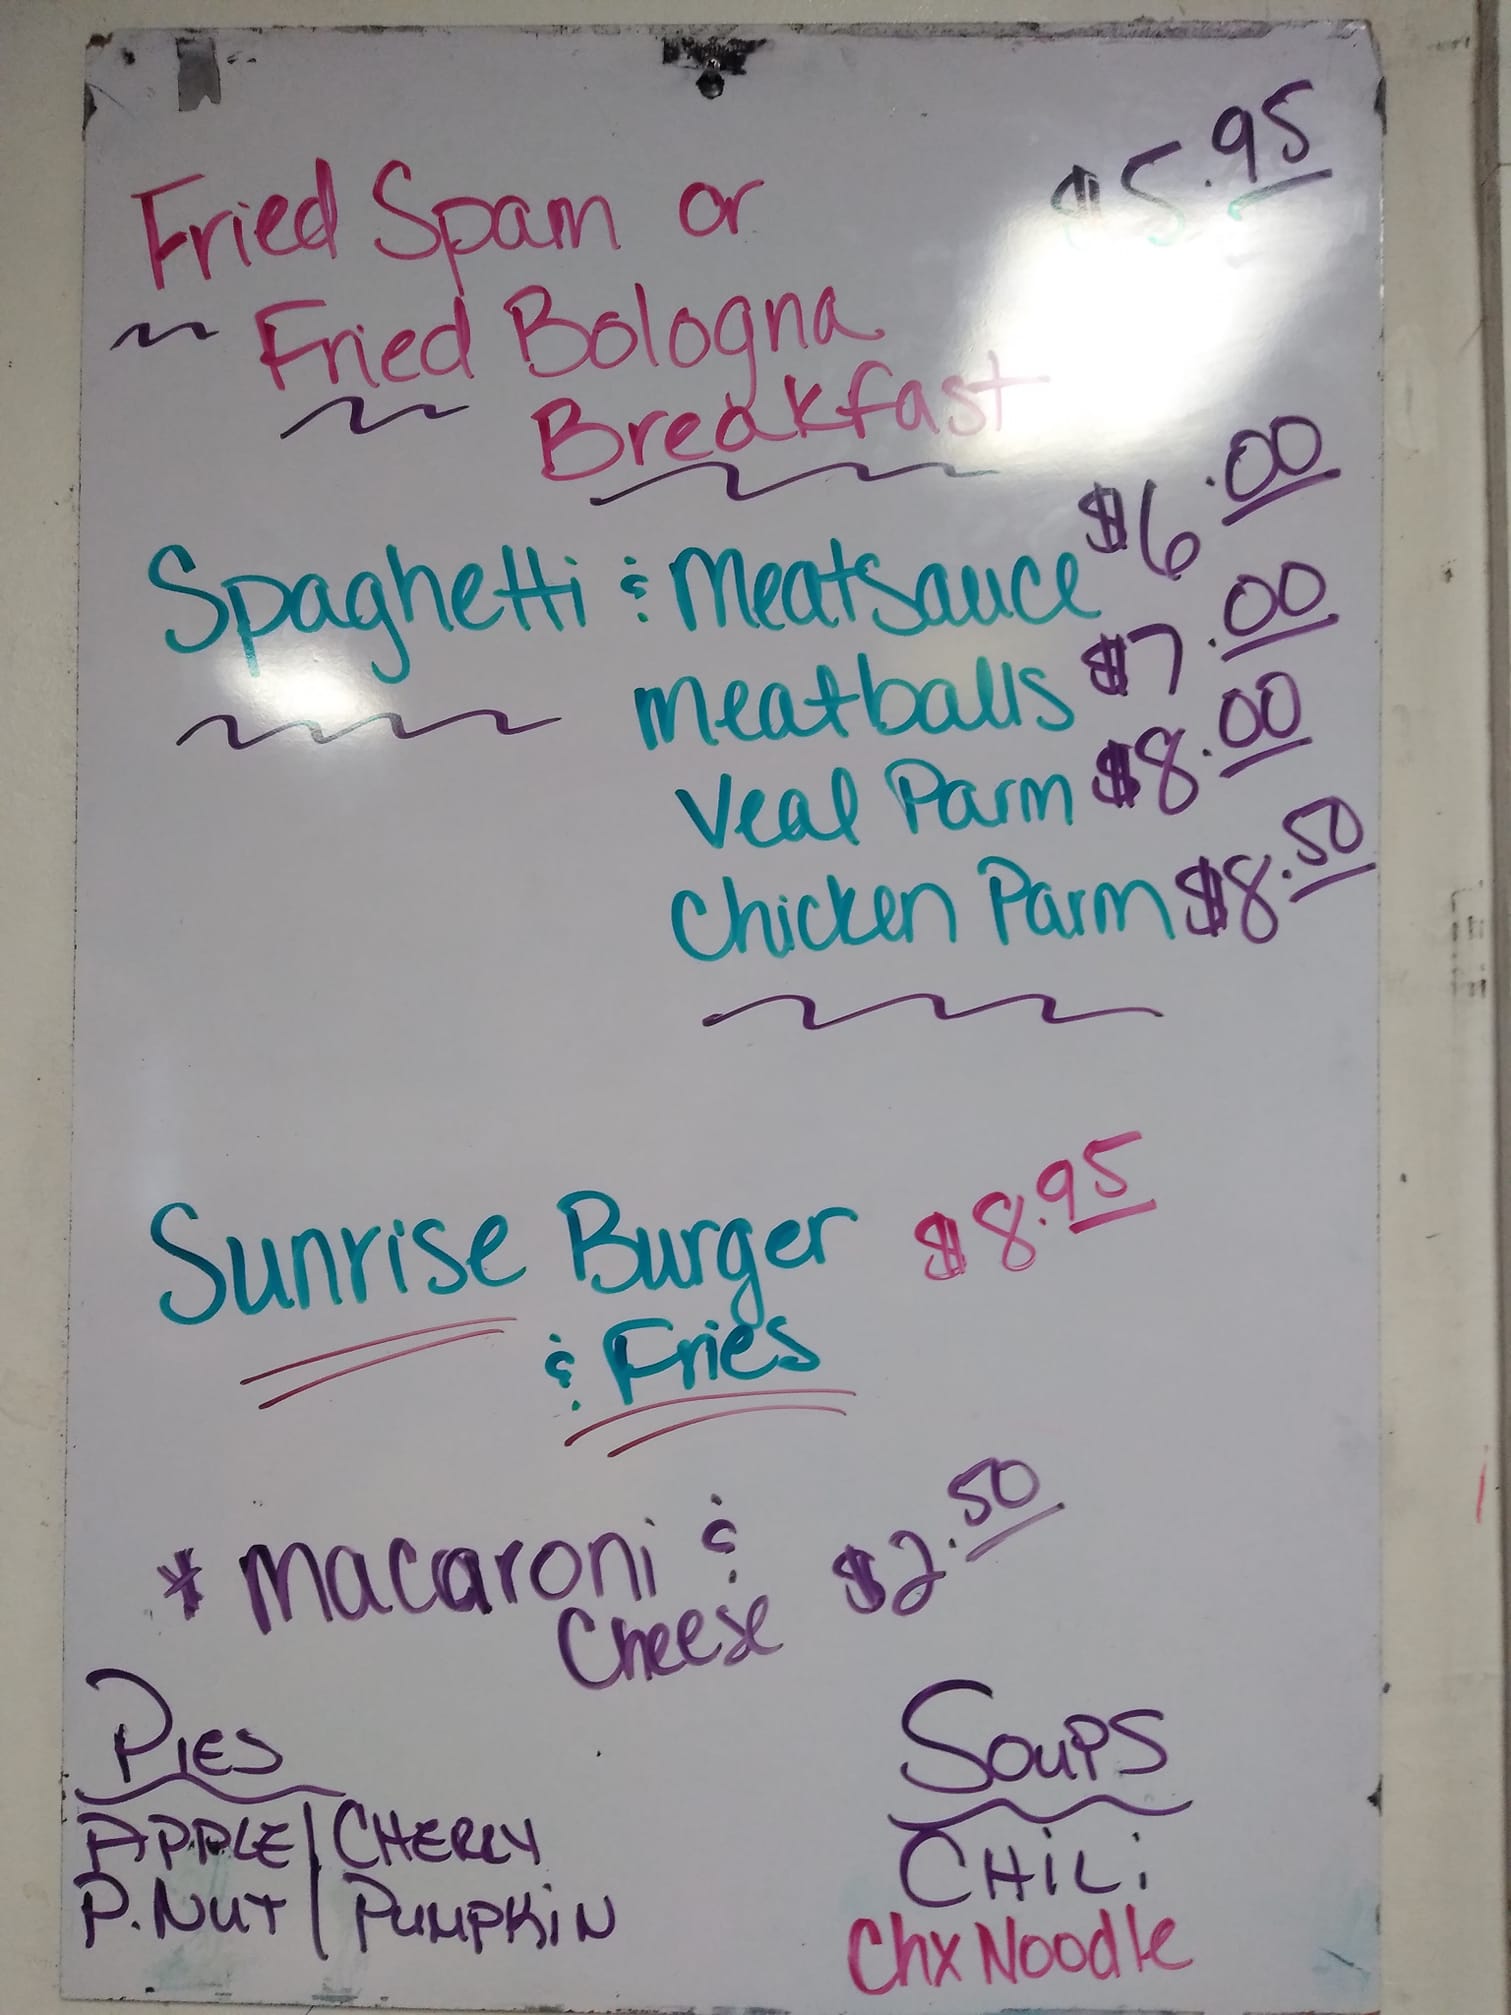 Fried Spam or $5.95
Fried Bologna
Breakfast
Spaghetti & Meatsauce $6.00
Meatballs $7.00
Veal Parm $8.00
Chicken Parm $8.50
Sunrise Burger $8.95
& Fries
* Macaroni & $2.50
Cheese
PIES
APPLE | CHERRY
P. NUT | PUMPKiN
SOUPS
CHiLi
Chx Noodle